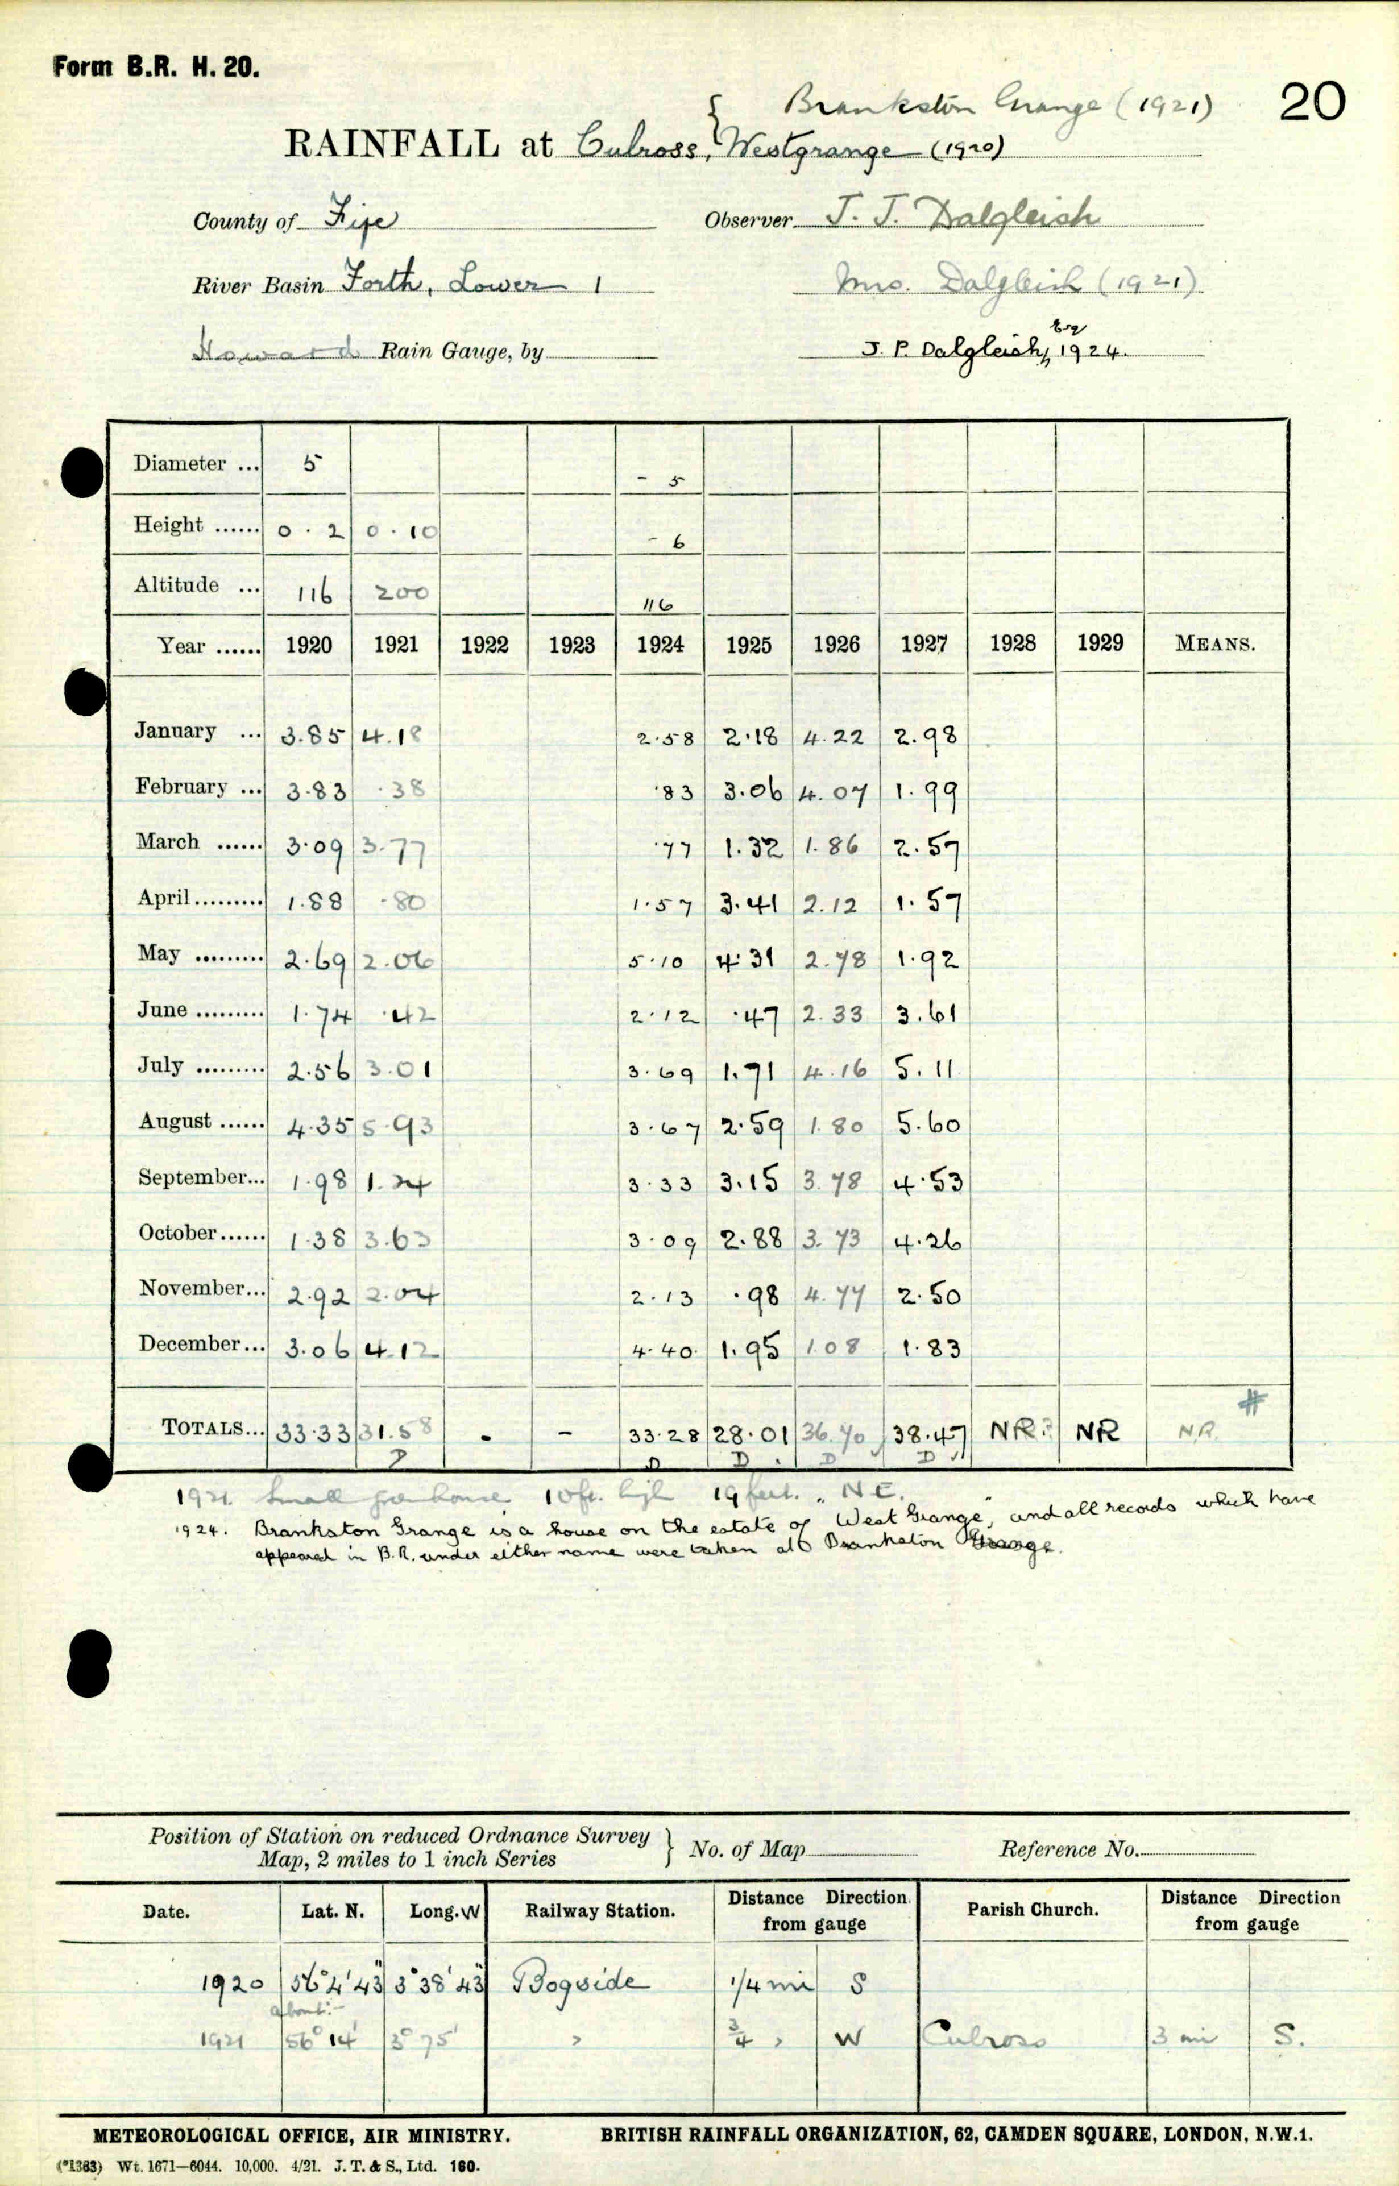 Form B.R. H. 20.
20
Brankston Grange (1921)
RAINFALL at Culross, { Westgrange (1920)
County of Fife Observer J. J. Dalgleish
River Basin Forth, Lower 1 Mrs. Dalgleish (1921)
Howard Rain Gauge, by J. P. Dalgleish, Esq 1924.
Diameter ... 5 - 5
Height ...... 0 . 2 0 . 10 - 6
Altitude ... 116 200 116
Year ...... 1920 1921 1922 1923 1924 1925 1926 1927 1928 1929 MEANS.
January ... 3.85 4.18 2.58 2.18 4.22 2.98
February ... 3.83 .38 .83 3.06 4.07 1.99
March ...... 3.09 3.77 .77 1.32 1.86 2.57
April......... 1.88 .80 1.57 3.41 2.12 1.57
May ......... 2.69 2.06 5.10 4.31 2.78 1.92
June ......... 1.74 .42 2.12 .47 2.33 3.61
July ......... 2.56 3.01 3.69 1.71 4.16 5.11
August ...... 4.35 5.93 3.67 2.59 1.80 5.60
September... 1.98 1.24 3.33 3.15 3.78 4.53
October...... 1.38 3.63 3.09 2.88 3.73 4.26
November... 2.92 2.04 2.13 .98 4.77 2.50
December... 3.06 4.12 4.40 1.95 1.08 1.83
#
TOTALS... 33.33 31.58 . - 33.28 28.01 36.70 38.47 NR? NR N.R.
D D D D D
1921. Small greenhouse 10ft. high 19 feet. NE.
1924. Brankston Grange is a house on the estate of "West Grange", and all records which have
appeared in B.R. under either name were taken at Brankston Grange.
Position of Station on reduced Ordnance Survey
Map, 2 miles to 1 inch Series } No. of Map Reference No.
Date. Lat. N. Long. W Railway Station. Distance Direction from gauge Parish Church. Distance Direction from gauge
1920 56° 4' 43" 3° 38' 43" Bogside 1/4 mi S
about:-
1921 56° 14' 3° 75' " 3/4 " W Culross 3 mi S.
METEOROLOGICAL OFFICE, AIR MINISTRY. BRITISH RAINFALL ORGANIZATION, 62, CAMDEN SQUARE, LONDON, N.W.1.
(*1383) Wt. 1671—6044. 10,000. 4/21. J. T. & S., Ltd. 160.